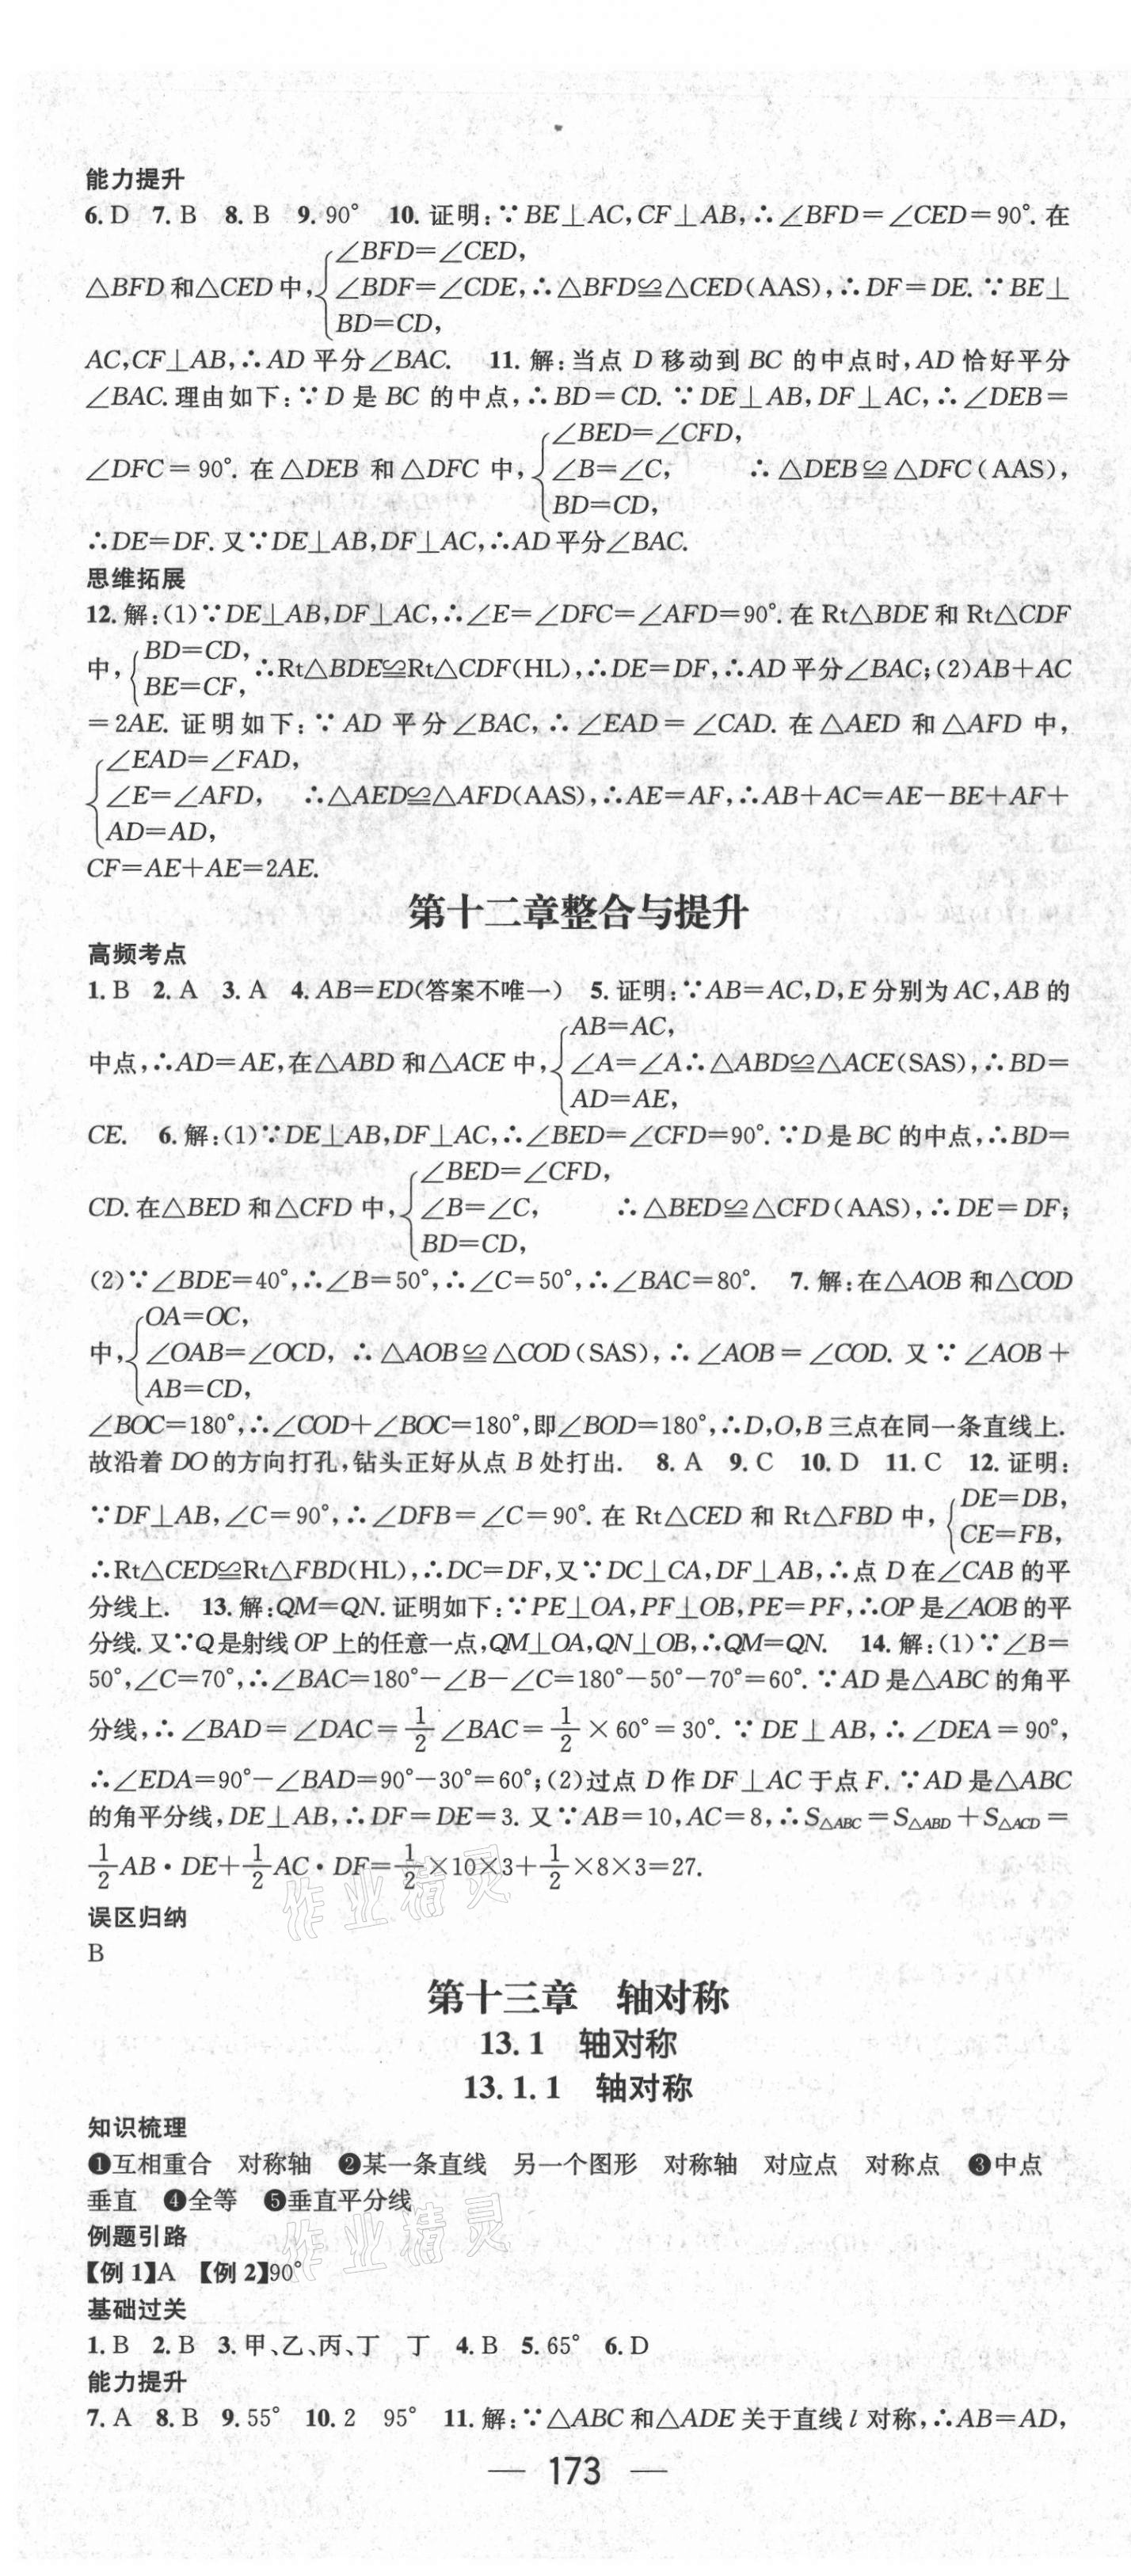 能力提升
6. D 7. B 8. B 9. 90° 10. 证明:∵BE⊥AC,CF⊥AB,∴∠BFD=∠CED=90°. 在
∠BFD=∠CED,
△BFD和△CED中,{∠BDF=∠CDE,∴△BFD≌△CED(AAS),∴DF=DE. ∵BE⊥
BD=CD,
AC,CF⊥AB,∴AD 平分∠BAC. 11. 解:当点 D 移动到 BC 的中点时,AD 恰好平分
∠BAC. 理由如下:∵D 是 BC 的中点,∴BD=CD. ∵DE⊥AB,DF⊥AC,∴∠DEB=
∠BED=∠CFD,
∠DFC=90°. 在△DEB 和△DFC 中,{∠B=∠C, ∴△DEB≌△DFC(AAS),
BD=CD,
∴DE=DF. 又∵DE⊥AB,DF⊥AC,∴AD平分∠BAC.
思维拓展
12. 解:(1)∵DE⊥AB,DF⊥AC,∴∠E=∠DFC=∠AFD=90°. 在 Rt△BDE 和 Rt△CDF
BD=CD,
中,{ ∴Rt△BDE≌Rt△CDF(HL),∴DE=DF,∴AD 平分∠BAC;(2)AB+AC
BE=CF,
=2AE. 证明如下:∵AD 平分∠BAC,∴∠EAD=∠CAD. 在△AED 和△AFD 中,
∠EAD=∠FAD,
{∠E=∠AFD, ∴△AED≌△AFD(AAS),∴AE=AF,∴AB+AC=AE-BE+AF+
AD=AD,
CF=AE+AE=2AE.
第十二章整合与提升
高频考点
1. B 2. A 3. A 4. AB=ED(答案不唯一) 5. 证明:∵AB=AC,D,E分别为AC,AB的
AB=AC,
中点,∴AD=AE,在△ABD 和△ACE 中,{∠A=∠A∴△ABD≌△ACE(SAS),∴BD=
AD=AE,
CE. 6. 解:(1)∵DE⊥AB,DF⊥AC,∴∠BED=∠CFD=90°. ∵D是BC的中点,∴BD=
∠BED=∠CFD,
CD. 在△BED 和△CFD 中,{∠B=∠C, ∴△BED≌△CFD(AAS),∴DE=DF;
BD=CD,
(2)∵∠BDE=40°,∴∠B=50°,∴∠C=50°,∴∠BAC=80°. 7. 解:在△AOB 和△COD
OA=OC,
中,{∠OAB=∠OCD, ∴△AOB≌△COD(SAS),∴∠AOB=∠COD. 又∵∠AOB+
AB=CD,
∠BOC=180°,∴∠COD+∠BOC=180°,即∠BOD=180°,∴D,O,B三点在同一条直线上.
故沿着 DO 的方向打孔,钻头正好从点 B 处打出. 8. A 9. C 10. D 11. C 12. 证明:
DE=DB,
∵DF⊥AB,∠C=90°,∴∠DFB=∠C=90°. 在 Rt△CED 和 Rt△FBD 中,{
CE=FB,
∴Rt△CED≌Rt△FBD(HL),∴DC=DF,又∵DC⊥CA,DF⊥AB,∴点 D 在∠CAB 的平
分线上. 13. 解:QM=QN. 证明如下:∵PE⊥OA,PF⊥OB,PE=PF,∴OP是∠AOB的平
分线. 又∵Q是射线OP上的任意一点,QM⊥OA,QN⊥OB,∴QM=QN. 14. 解:(1)∵∠B=
50°,∠C=70°,∴∠BAC=180°-∠B-∠C=180°-50°-70°=60°. ∵AD是△ABC的角平
分线,∴∠BAD=∠DAC=1/2∠BAC=1/2×60°=30°. ∵DE⊥AB,∴∠DEA=90°,
∴∠EDA=90°-∠BAD=90°-30°=60°;(2)过点 D 作 DF⊥AC 于点 F. ∵AD 是△ABC
的角平分线,DE⊥AB,∴DF=DE=3. 又∵AB=10,AC=8,∴S△ABC=S△ABD+S△ACD=
1/2AB·DE+1/2AC·DF=1/2×10×3+1/2×8×3=27.
作业精灵
误区归纳
B
第十三章 轴对称
13.1 轴对称
13.1.1 轴对称
知识梳理
❶互相重合 对称轴 ❷某一条直线 另一个图形 对称轴 对应点 对称点 ❸中点
垂直 ❹全等 ❺垂直平分线
作业精灵
例题引路
【例1】A 【例2】90°
基础过关
1. B 2. B 3. 甲、乙、丙、丁 丁 4. B 5. 65° 6. D
能力提升
7. A 8. B 9. 55° 10. 2 95° 11. 解:∵△ABC和△ADE关于直线 l 对称,∴AB=AD,
— 173 —